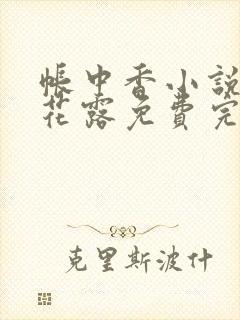 帳中香小說
花露免費完
克里斯波什